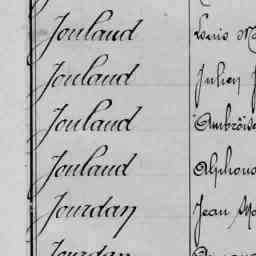 Jouland Louis
Jouland Julien
Jouland Ambroise
Jouland Alphons
Jourdan Jean
Jourdan